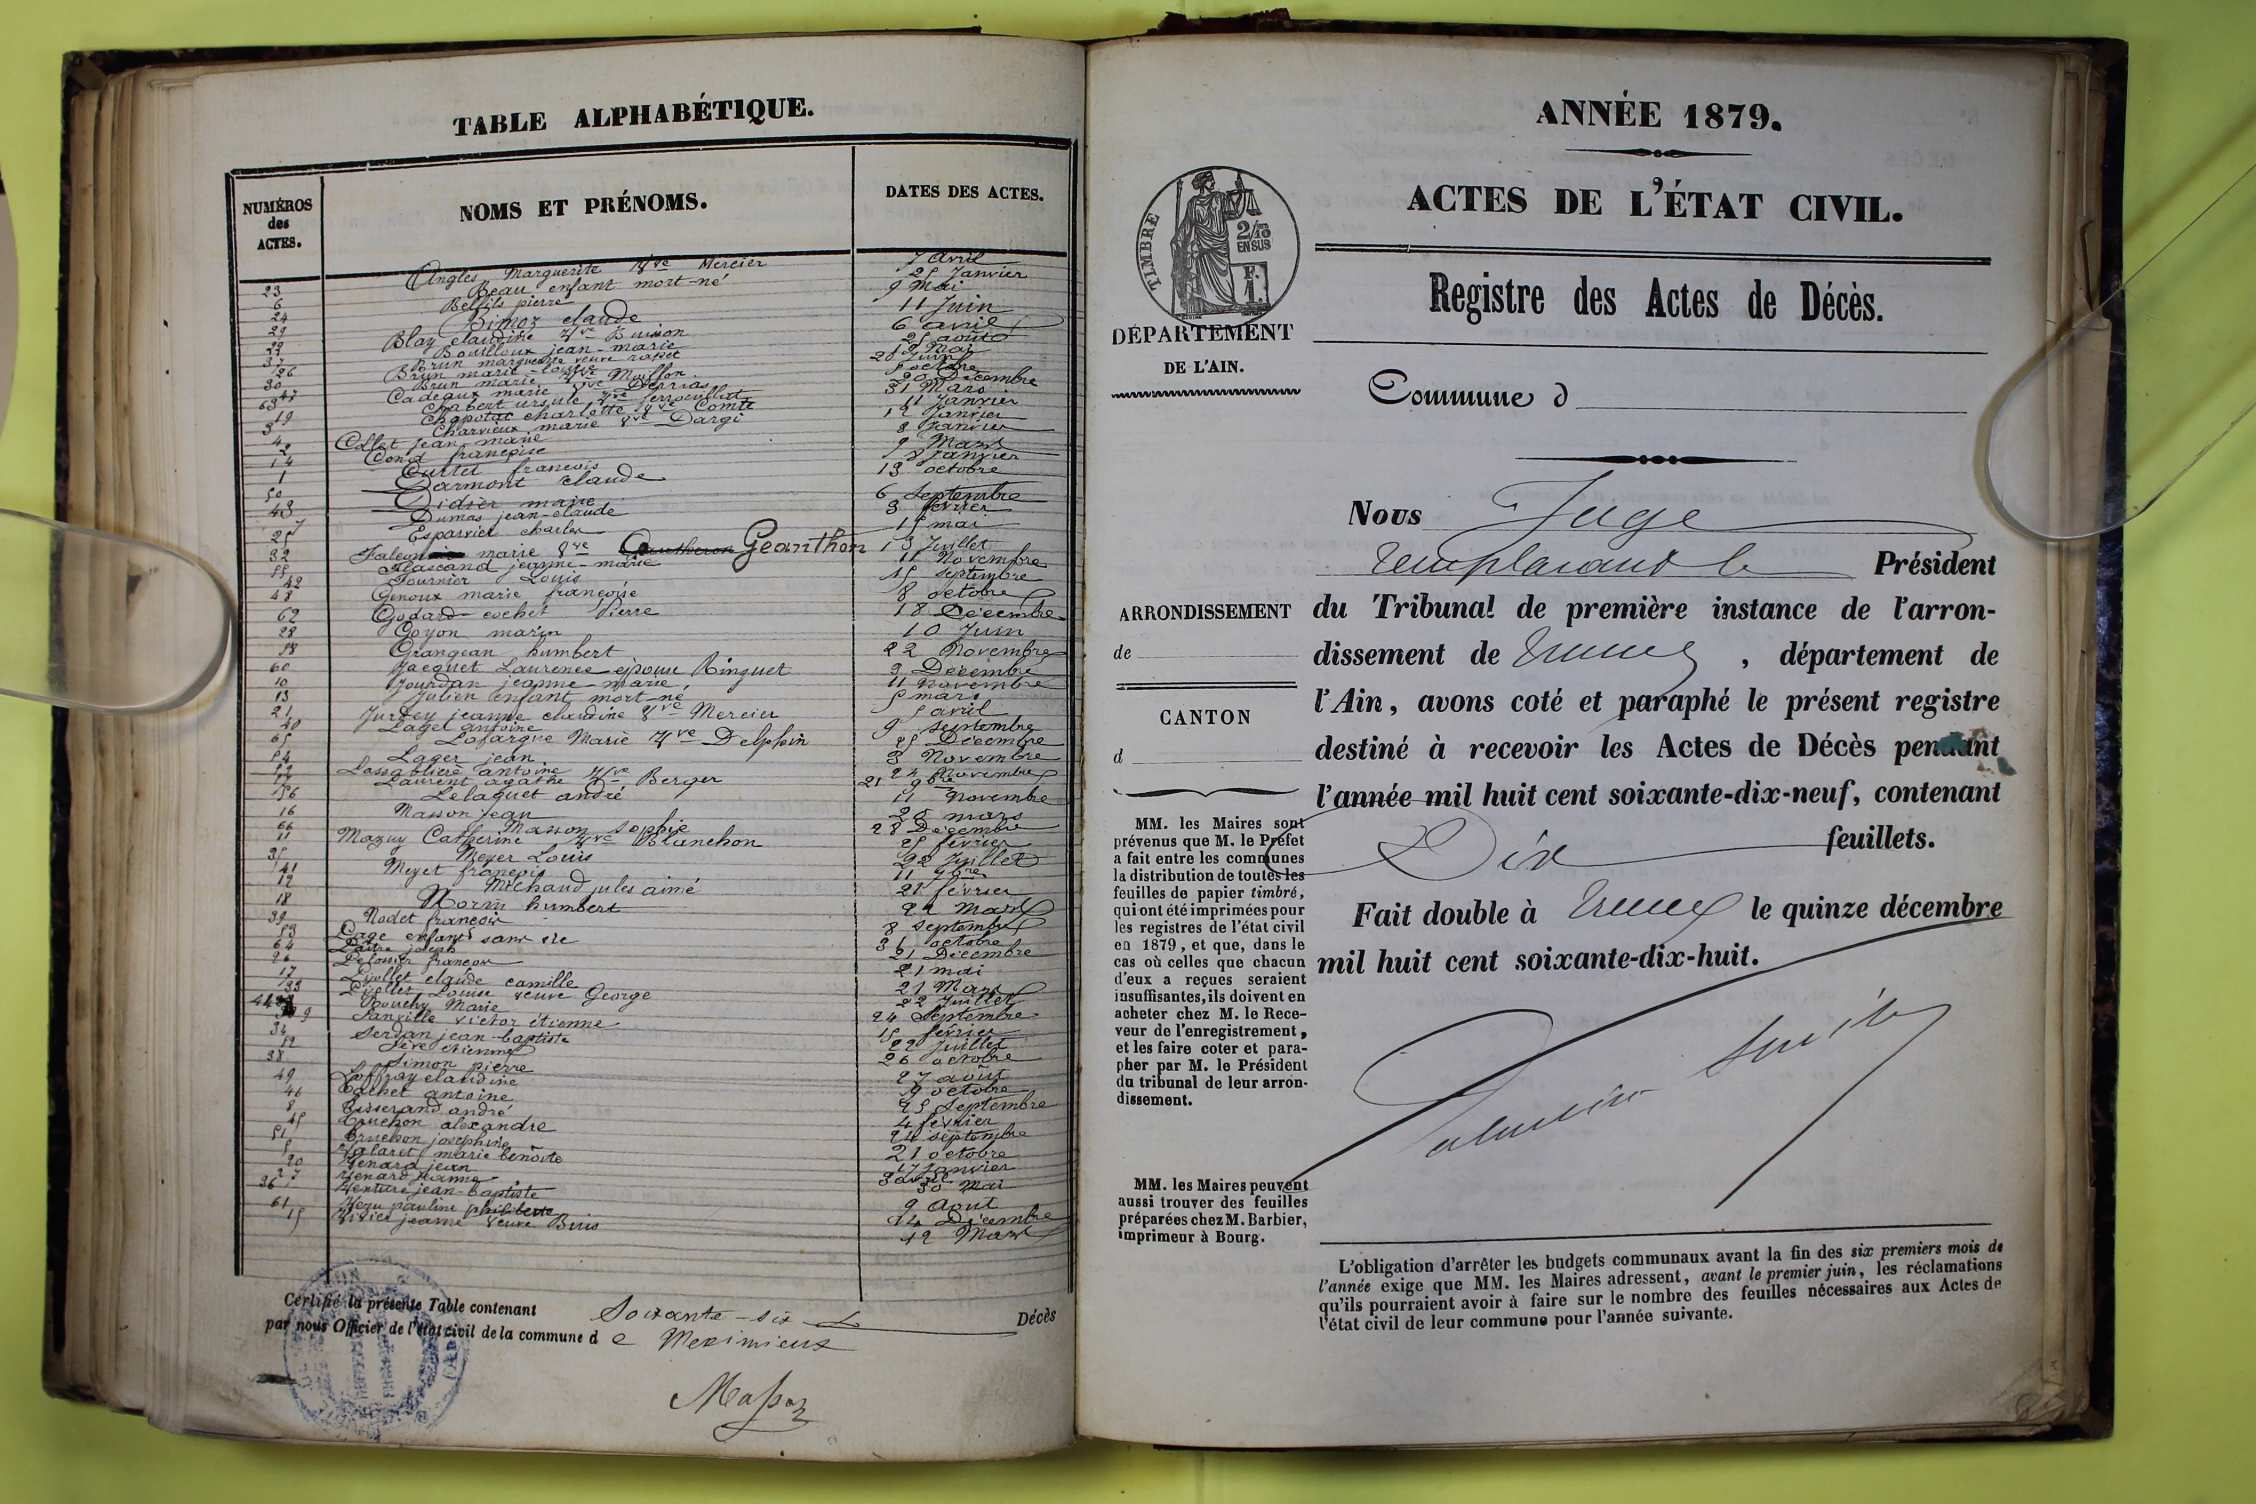 TABLE ALPHABÉTIQUE.
NUMÉROS
des
ACTES.
NOMS ET PRÉNOMS.
DATES DES ACTES.
23 Anglès Marguerite Vve Mercier 7 Avril
6 Beau enfant mort-né 25 Janvier
24 Belfils pierre 9 Mai
29 Bimoz claude 11 Juin
Blay claudine Vve Buisson 6 avril
Bouilloux jean-marie 25 août
37 Brun marguerite veuve rapet 13 Mai
26 Brun marie-louise 20 Juin
30 Brun marie Vve Maillon octobre
47 Cadeaux marie Vve Derrias 20 Décembre
63 Chabert ursule Vve 31 Mars
19 Chapotat charlotte Vve Comte 11 Janvier
3 Charvieux marie Vve Dargi 12 Janvier
4 Collet jean-marie 8 Janvier
2 Cond françoise 9 Mars
14 Curtet francois 8 Janvier
1 Darmont claude 13 octobre
50 Didier marie 6 Septembre
43 Dumas jean-claude 3 février
7 Esparviet charles 15 mai
25 Falcon marie Vve Geanthon 13 Juillet
32 Flascand jeanne-marie 15 Novembre
55 Fournier Louis 15 septembre
42 Genoux marie françoise 8 octobre
48 Godard cochet Pierre 18 Décembre
62 Goyon marin 10 Juin
28 Grangean humbert 22 Novembre
58 Jacquet Laurence épouse Ringuet 9 Décembre
60 Jourdan jeanne marie 11 novembre
10 Julien enfant mort-né 5 mars
13 Jurdey jeanne claudine Vve Mercier 5 avril
21 Laget antoine 9 septembre
40 Lafargue Marie Vve Delphin 25 Décembre
65 Lager jean 3 Novembre
54 Lassablière antoine 24 Novembre
Laurent agathe Vve Berger 21 9bre
56 Lelaquet andré 11 Novembre
16 Masson jean 28 mars
66 Masson Sophie 28 Décembre
11 Mazuy Catherine Vve Blanchon 25 février
35 Meyer Louis 22 Juillet
41 Meyet françois 11 7bre
12 Michaud jules aimé 21 février
18 Morin humbert 22 Mars
39 Nodet françois 8 Septembre
53 Page enfant sans vie 31 octobre
64 joseph 21 Décembre
26 françois 21 mai
17 claude camille 21 Mars
33 Louise veuve George 22 Juillet
44 Rouchy Marie 24 Septembre
9 Sanville victor étienne 15 février
34 Serdan jean-baptiste 22 Juillet
52 Sève étienne 26 octobre
38 Simon pierre 27 août
49 Soffray claudine 9 octobre
46 Tachet antoine 25 Septembre
8 Tisserand andré 4 février
45 Truchon alexandre 24 septembre
51 Truchon joséphine 21 octobre
5 Valaret marie benoîte 17 Janvier
20 Venard jean 3 avril
27 Venard jeanne 30 Mai
36 Venture jean-baptiste 9 Août
61 Venu pauline philiberte 14 Décembre
15 Vivier jeanne veuve Buis 12 Mars
Certifié la présente Table contenant Soixante-six Décès
par nous Officier de l'état civil de la commune d e Meximieux
ANNÉE 1879.
ACTES DE L'ÉTAT CIVIL.
Registre des Actes de Décès.
TIMBRE
2/10
EN SUS
DÉPARTEMENT
DE L'AIN.
Commune d
Nous Juge
remplaçant le Président
du Tribunal de première instance de l'arron-
dissement de Trévoux, département de
l'Ain, avons coté et paraphé le présent registre
destiné à recevoir les Actes de Décès pendant
l'année mil huit cent soixante-dix-neuf, contenant
Dix feuillets.
Fait double à Trévoux le quinze décembre
mil huit cent soixante-dix-huit.
ARRONDISSEMENT
de
CANTON
d
MM. les Maires sont
prévenus que M. le Préfet
a fait entre les communes
la distribution de toutes les
feuilles de papier timbré,
qui ont été imprimées pour
les registres de l'état civil
en 1879, et que, dans le
cas où celles que chacun
d'eux a reçues seraient
insuffisantes, ils doivent en
acheter chez M. le Rece-
veur de l'enregistrement,
et les faire coter et para-
pher par M. le Président
du tribunal de leur arron-
dissement.
MM. les Maires peuvent
aussi trouver des feuilles
préparées chez M. Barbier,
imprimeur à Bourg.
L'obligation d'arrêter les budgets communaux avant la fin des six premiers mois de
l'année exige que MM. les Maires adressent, avant le premier juin, les réclamations
qu'ils pourraient avoir à faire sur le nombre des feuilles nécessaires aux Actes de
l'état civil de leur commune pour l'année suivante.